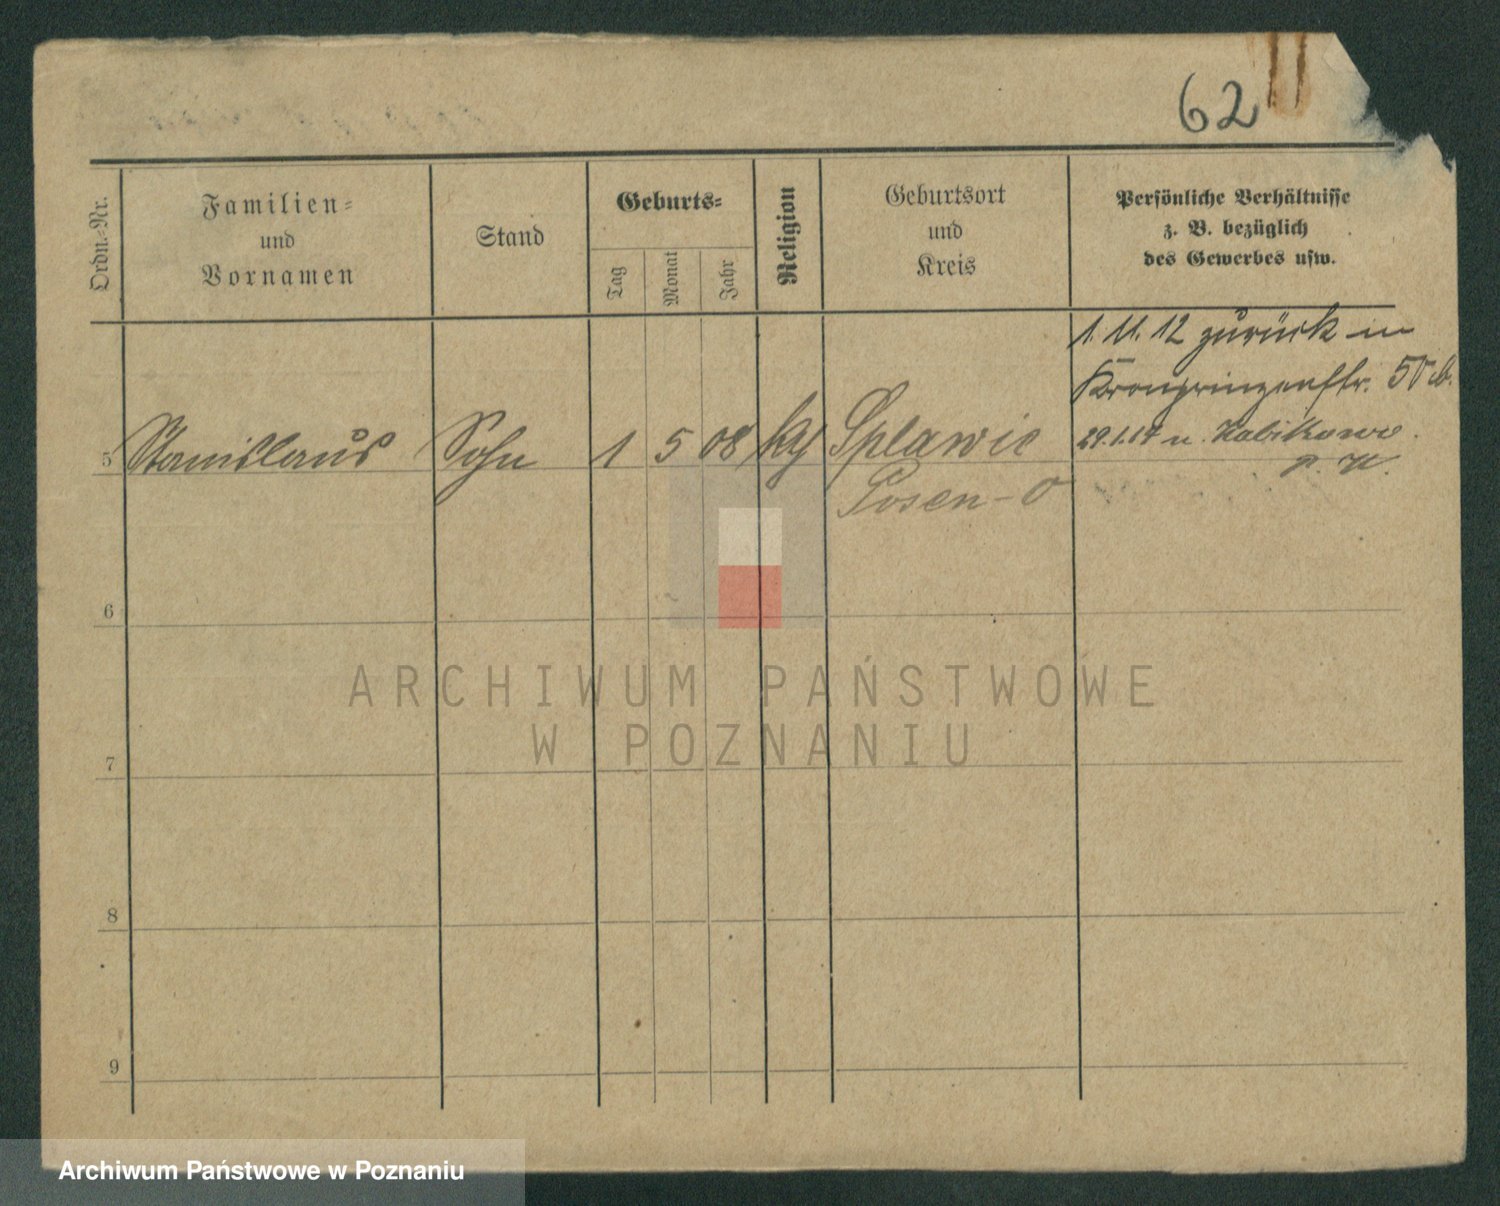 62
Ordn.-Nr.
Familien-
und
Vornamen
Stand
Geburts-
Tag
Monat
Jahr
Religion
Geburtsort
und
Kreis
Persönliche Verhältnisse
z. B. bezüglich
des Gewerbes usw.
1. 11. 12 zurück in
Kronprinzenstr. 50 b.
5 Stanislaus Sohn 1 5 08 Splawie
29.1.17 n.
Posen-O
6
7
8
9
ARCHIWUM PAŃSTWOWE
W POZNANIU
Archiwum Państwowe w Poznaniu